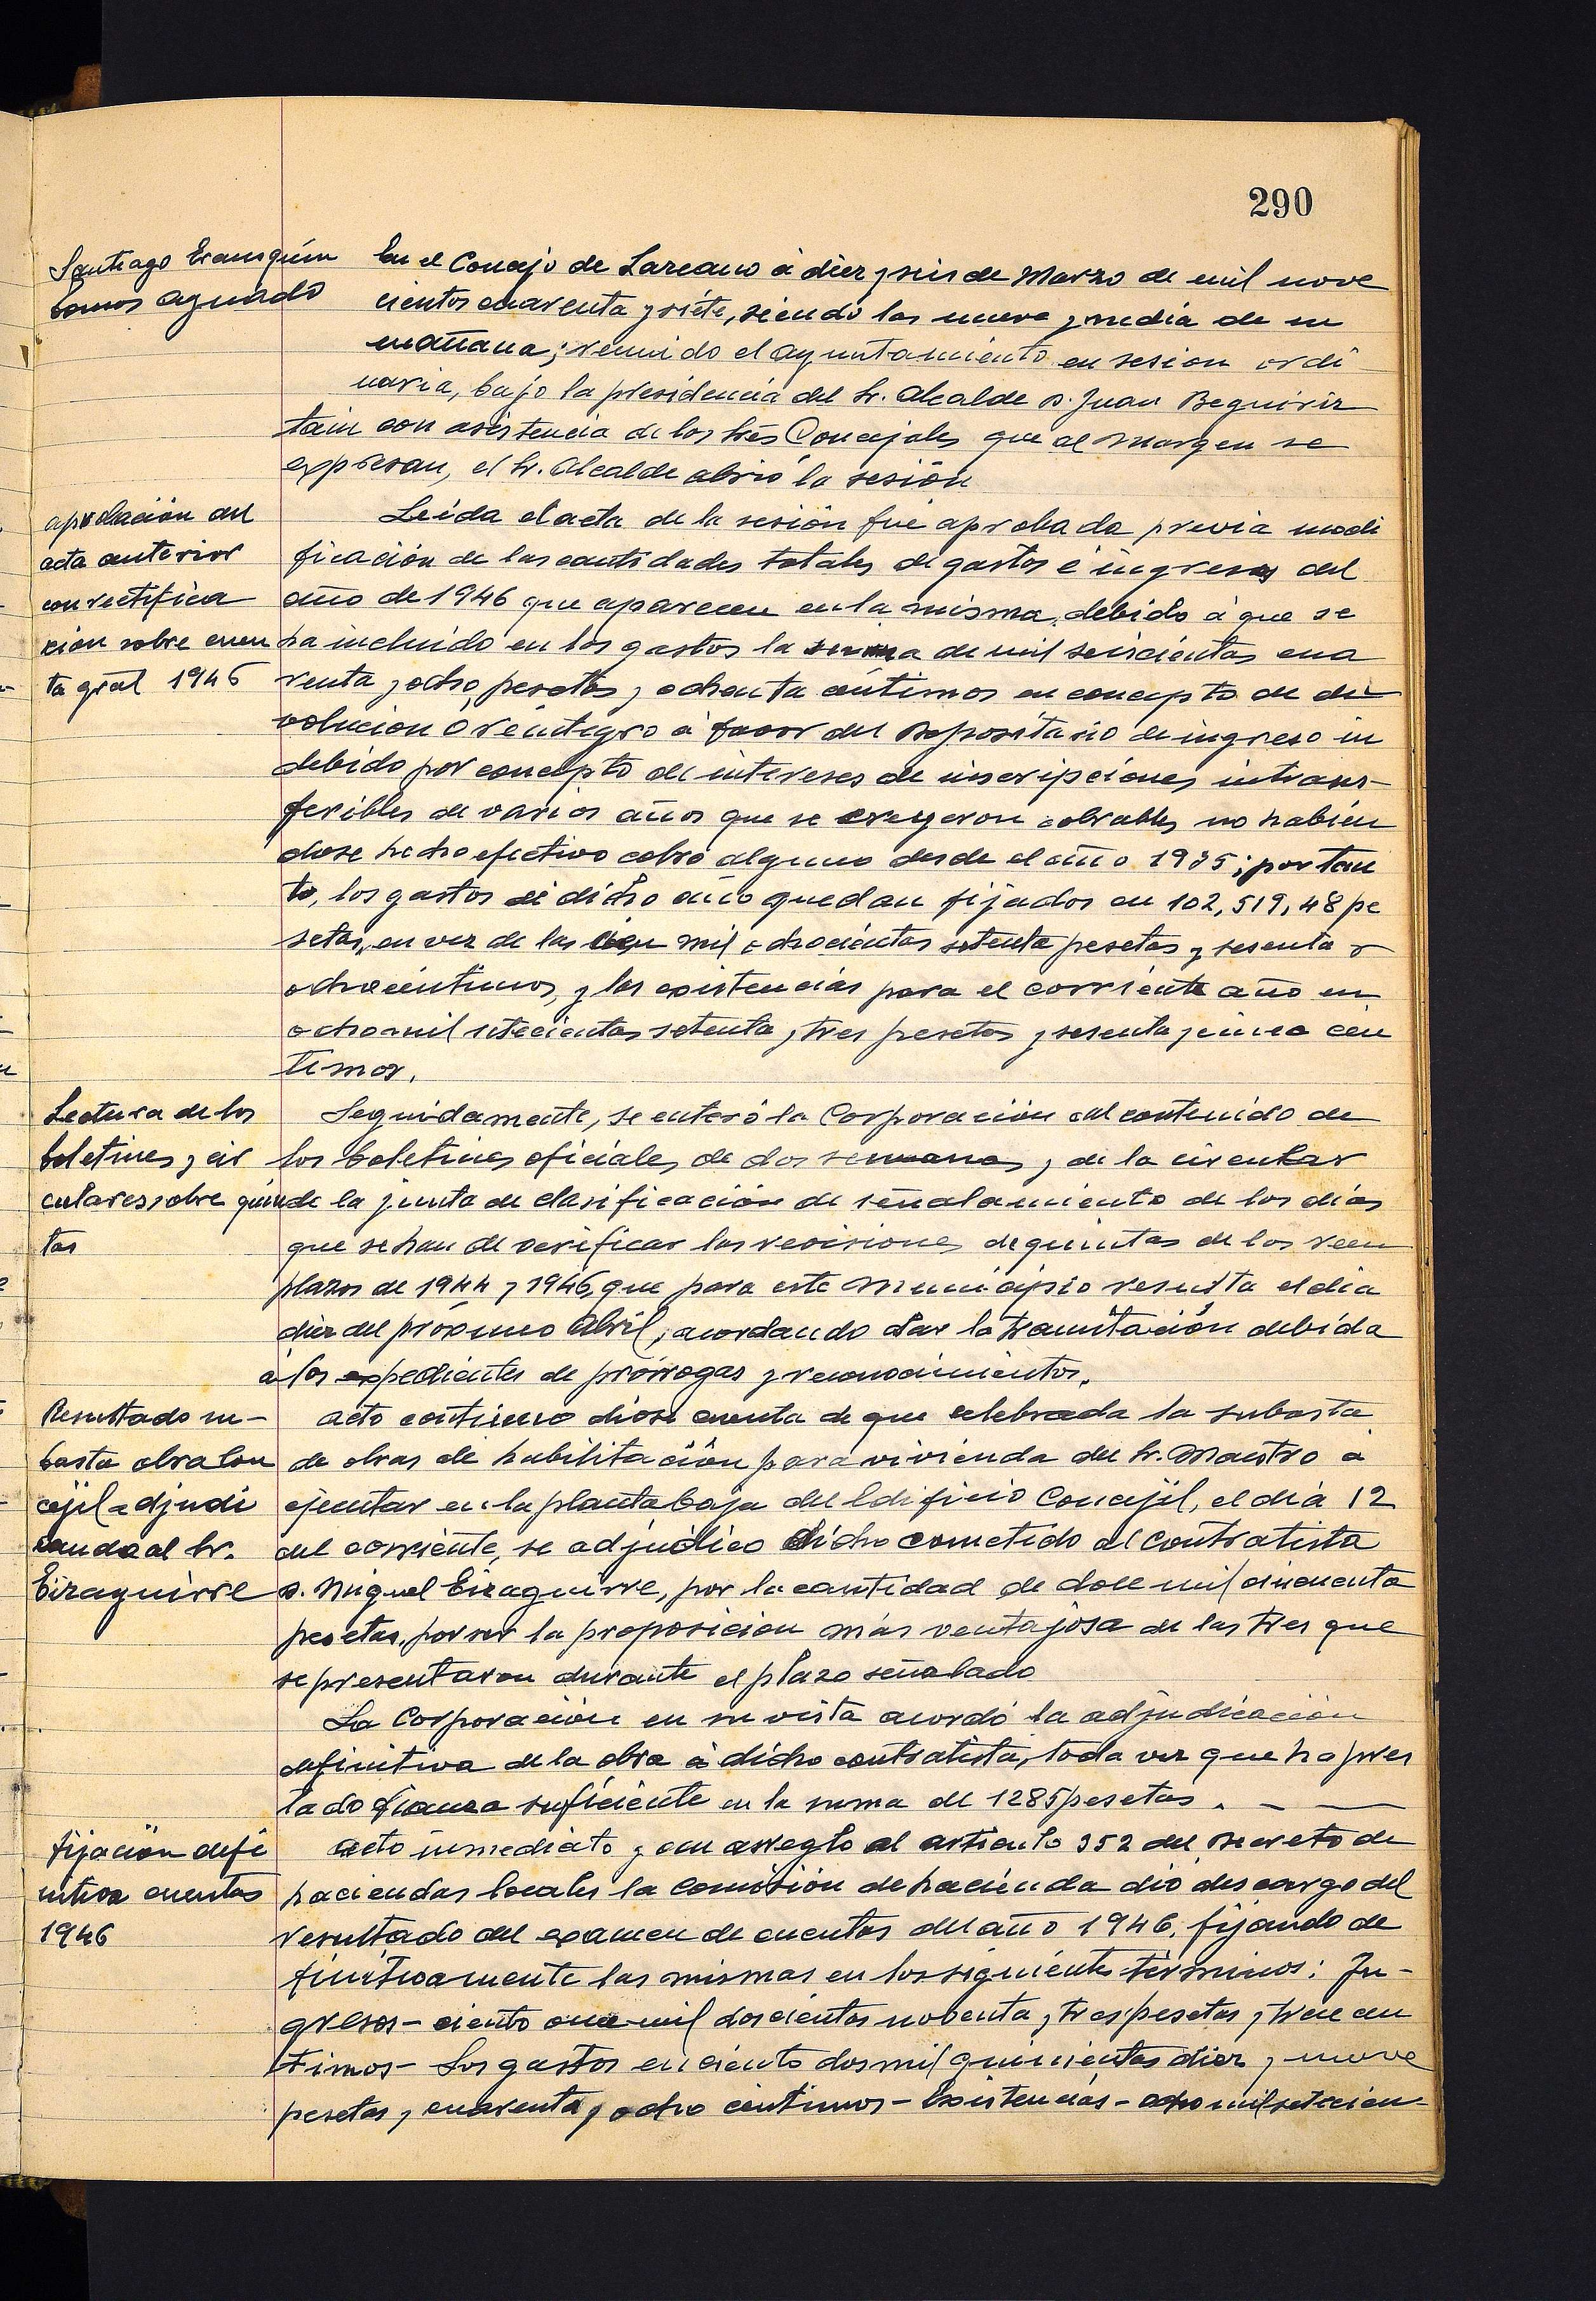 290
Santiago Eransquin
Lamos Aguado
En el Concejo de Larcano á diez y seis de Marzo de mil nove
cientos cuarenta y siete, siendo las nueve y media de su
mañana; reunido el Ayuntamiento en sesion ordi
naria, bajo la presidencia del Sr. Alcalde D. Juan Beguiriz
tain con asistencia de los tres Concejales que al margen se
expresan, el Sr. Alcalde abrió la sesión
aprobación del
acta anterior
con rectifica
cion sobre cuen
ta gral 1946
Leida el acta de la sesión fue aprobada previa modi
ficación de las cantidades totales de gastos é ingresos del
año de 1946 que aparecen en la misma, debido á que se
ha incluido en los gastos la suma de mil seiscientas cua
renta y ocho pesetas y ochenta céntimos en concepto de de
volucion ó reintegro á favor del Depositario de ingreso in
debido por concepto de intereses de inscripciones intrans-
feribles de varios años que se creyeron cobrables no habién
dose hecho efectivo cobro alguno desde el año 1935; por tan
to, los gastos de dicho año quedan fijados en 102,519,48 pe
setas, en vez de las cien mil ochocientas setenta pesetas y sesenta y
ocho céntimos, y las existencias para el corriente año en
ocho mil setecientas setenta y tres pesetas y sesenta y cinco cén
timos.
Lectura de los
boletines y cir
culares sobre quin
tas
Seguidamente, se enteró la Corporación del contenido de
los boletines oficiales de dos semanas y de la circular
de la junta de clasificación de señalamiento de los días
que se han de verificar las revisiones de quintas de los reem
plazos de 1944 y 1946, que para este Municipio resulta el dia
diez del próximo Abril, acordando dar la tramitación debida
a los expedientes de prórrogas y reconocimientos.
Resultado su-
basta obra Con
cejil adjudi
cando al Sr.
Eizaguirre
Acto continuo dióse cuenta de que celebrada la subasta
de obras de habilitación para vivienda del Sr. Maestro á
ejecutar en la planta baja del Edificio Concejil, el día 12
del corriente, se adjudico dicho cometido al Contratista
D. Miguel Eizaguirre, por la cantidad de doce mil cincuenta
pesetas, por ser la proposicion más ventajosa de las tres que
se presentaron durante el plazo señalado
La Corporación en su vista acordó la adjudicación
definitiva de la obra á dicho contratista, toda vez que ha pres
tado fianza suficiente en la suma de 1285 pesetas . - —
Fijación defi
nitiva cuentas
1946
Acto inmediato y con arreglo al articulo 352 del Decreto de
haciendas locales la Comisión de hacienda dió descargo del
resultado del examen de cuentas del año 1946, fijando de
finitivamente las mismas en los siguientes términos: In-
gresos - ciento once mil doscientas noventa y tres pesetas y trece cen
timos - Los gastos en ciento dos mil quinientas diez y nueve
pesetas y cuarenta y ocho céntimos - Existencias - ocho mil setecien-